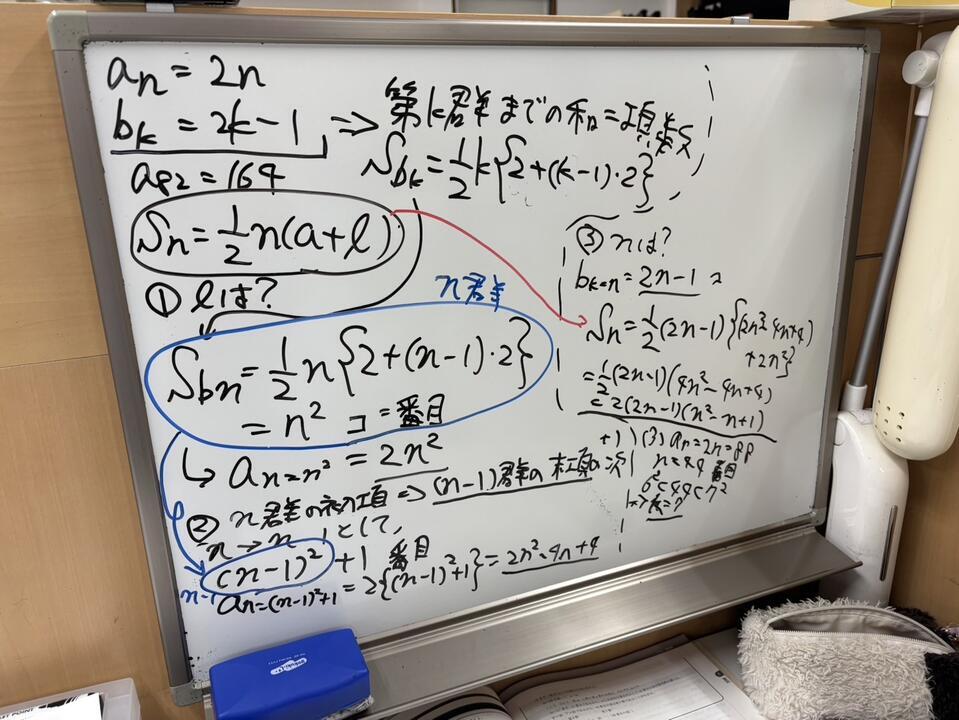 an = 2n
bk = 2k-1 ⇒ 第k群までの和=項数
Sbk = 1/2 k{2+(k-1)・2}
a82 = 164
Sn = 1/2 n(a+l)
① lは?
n群
Sbn = 1/2 n{2+(n-1)・2}
= n² コ=番目
↳ an=n² = 2n²
② n群の初項 ⇒ (n-1)群の末項の次
+1
n → n-1として、
(n-1)² + 1 番目
n-1
an=(n-1)²+1 = 2{(n-1)²+1} = 2n²-4n+4
③ nは?
bk=n = 2n-1
Sn = 1/2 (2n-1){(2n²-4n+4)
+2n²}
= 1/2 (2n-1)(4n²-4n+4)
= 2(2n-1)(n²-n+1)
(3) an=2n=88
n=44 番目
6²<44<7²
k=7